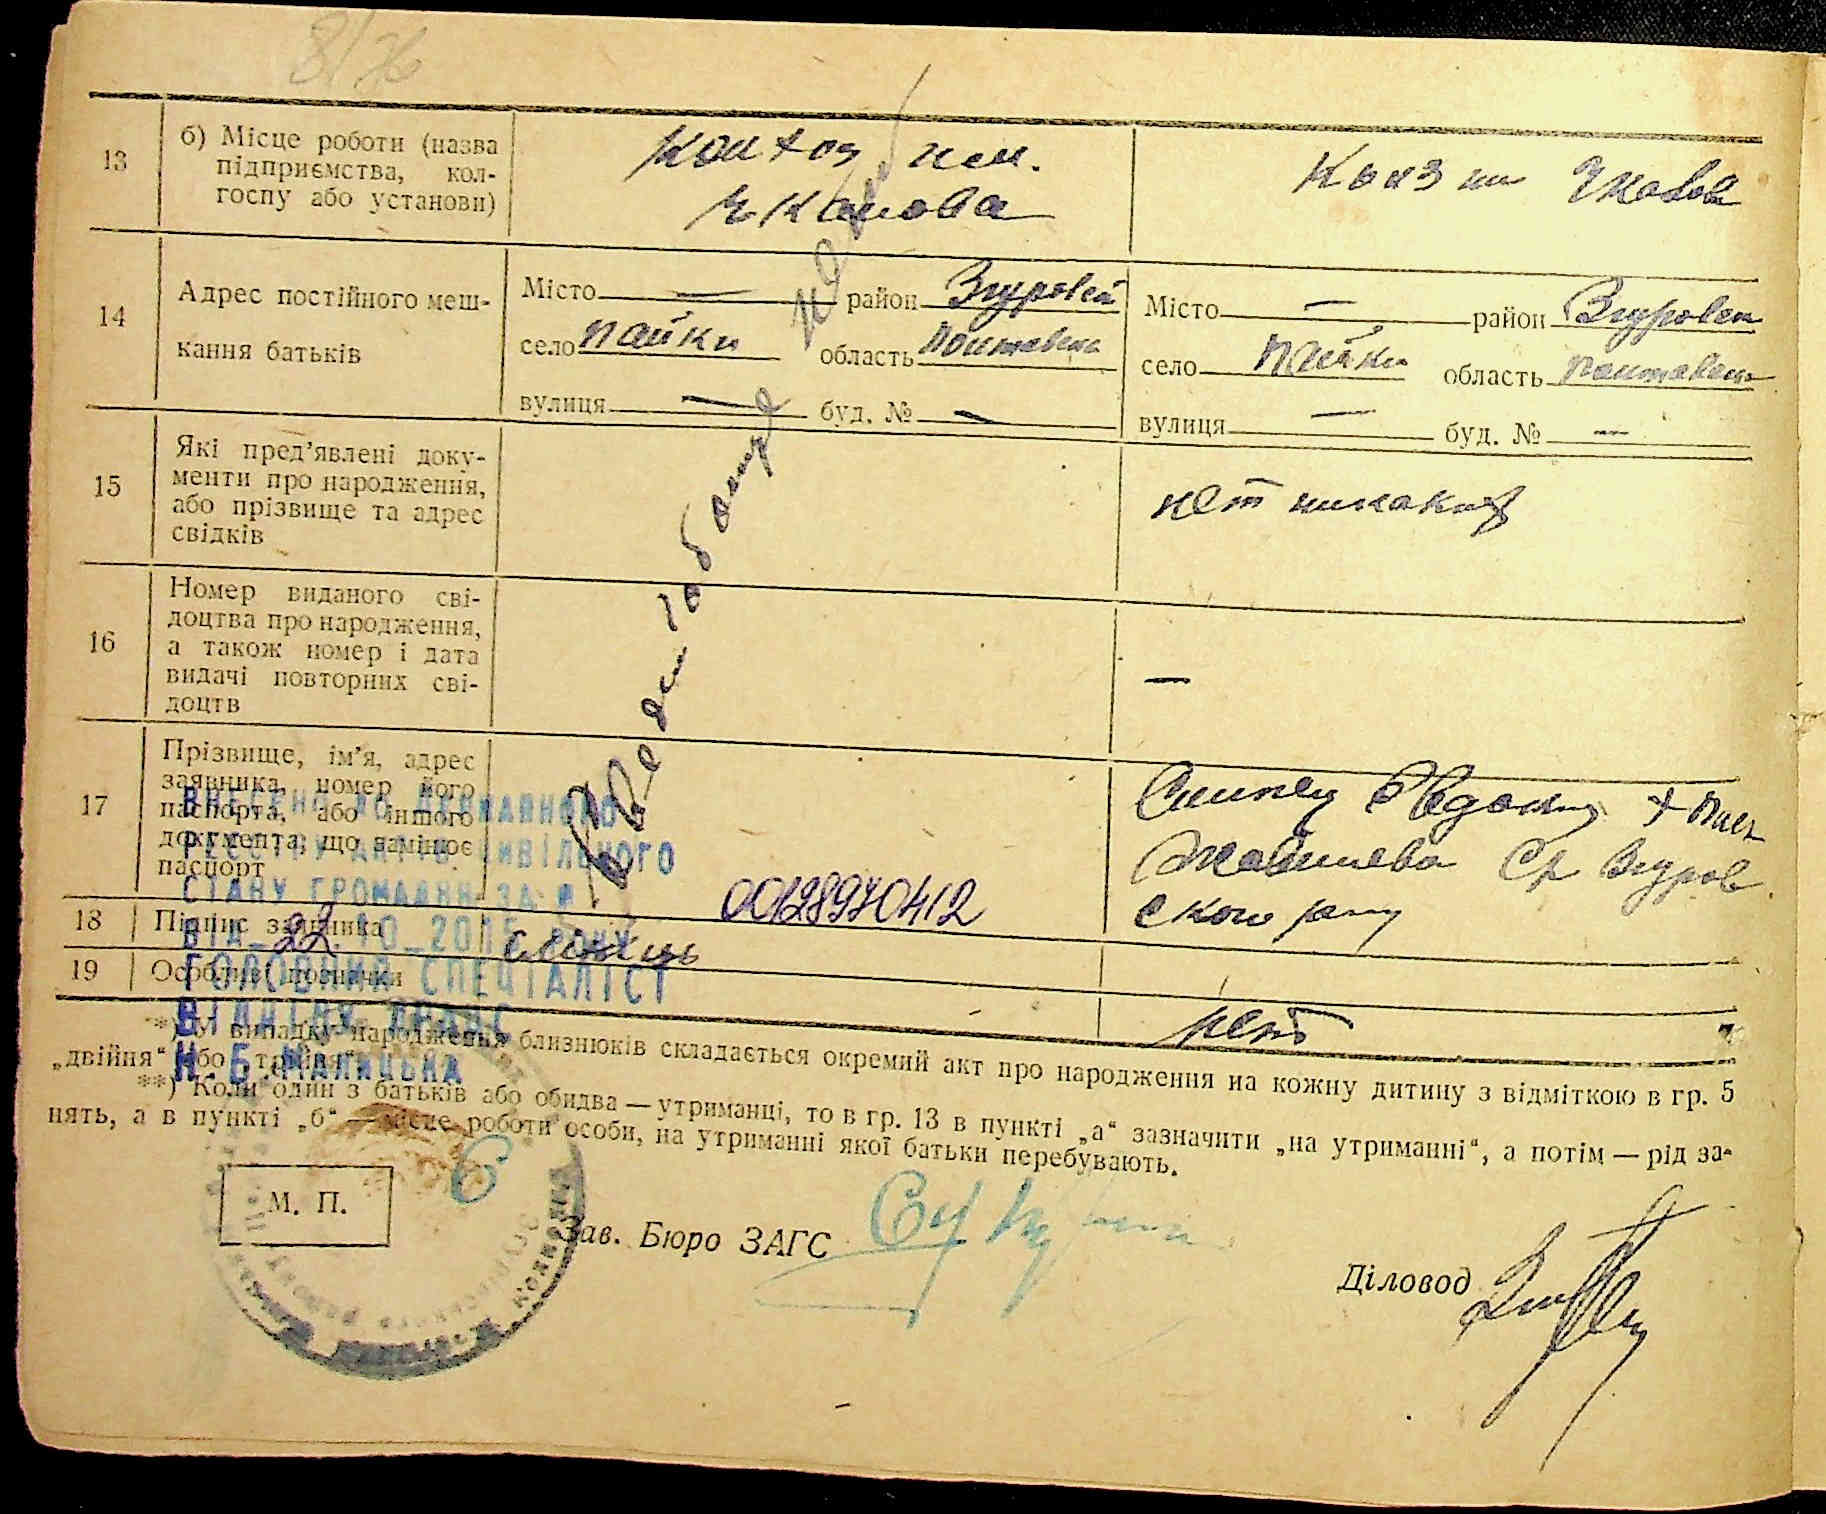 8/76
13
б) Місце роботи (назва
підприємства, кол-
госпу або установи)
Колхоз им.
Чкалова
Колхз им Чкалова
14
Адрес постійного меш-
кання батьків
Місто — район Згуровск
село Пайки область Полтавськ
вулиця — буд. № —
Місто — район Згуровск
село Пайки область Полтавськ
вулиця — буд. № —
15
Які пред’явлені доку-
менти про народження,
або прізвище та адрес
свідків
нет никаких
16
Номер виданого сві-
доцтва про народження,
а також номер і дата
видачі повторних сві-
доцтв
—
17
Прізвище, ім’я, адрес
заявника, номер його
паспорта, або іншого
документа, що замінює
паспорт
Слинец
ского
18
Підпис заявника
00128970412
19
Особливі позначки
нет
ВНЕСЕНО ДО ДЕРЖАВНОГО
РЕЄСТРУ АКТІВ ЦИВІЛЬНОГО
СТАНУ ГРОМАДЯН ЗА №
ВІД 22.10 2015 РОКУ
ГОЛОВНИЙ СПЕЦІАЛІСТ
ВІДДІЛУ ДРАЦС
Н.Б.МАЛИЦЬКА
*) У випадку народження близнюків складається окремий акт про народження на кожну дитину з відміткою в гр. 5
„двійня“ або „трійня“.
**) Коли один з батьків або обидва — утриманці, то в гр. 13 в пункті „а“ зазначити „на утриманні“, а потім — рід за-
нять, а в пункті „б“ — місце роботи особи, на утриманні якої батьки перебувають.
М. П.
Зав. Бюро ЗАГС
Діловод